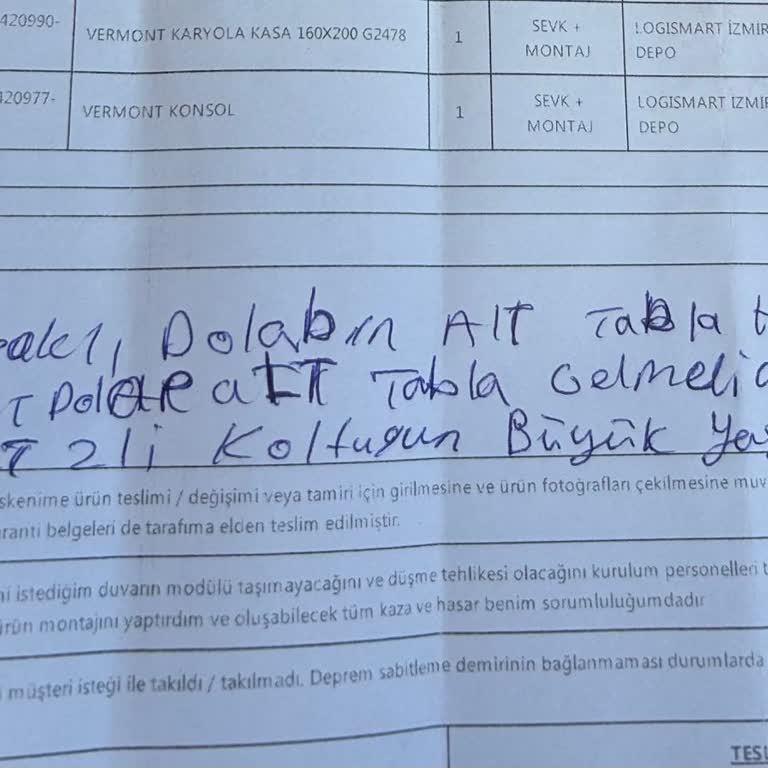 420990- VERMONT KARYOLA KASA 160X200 G2478 1 SEVK + MONTAJ LOGISMART İZMİR DEPO
420977- VERMONT KONSOL 1 SEVK + MONTAJ LOGISMART İZMİR DEPO
Dolabın Alt Tabla
alt Tabla Gelmedi
2li Koltugun Büyük
skenime ürün teslimi / değişimi veya tamiri için girilmesine ve ürün fotoğrafları çekilmesine muv
ranti belgeleri de tarafıma elden teslim edilmiştir.
ni istediğim duvarın modülü taşımayacağını ve düşme tehlikesi olacağını kurulum personelleri t
ürün montajını yaptırdım ve oluşabilecek tüm kaza ve hasar benim sorumluluğumdadır
i müşteri isteği ile takıldı / takılmadı. Deprem sabitleme demirinin bağlanmaması durumlarda
TESL